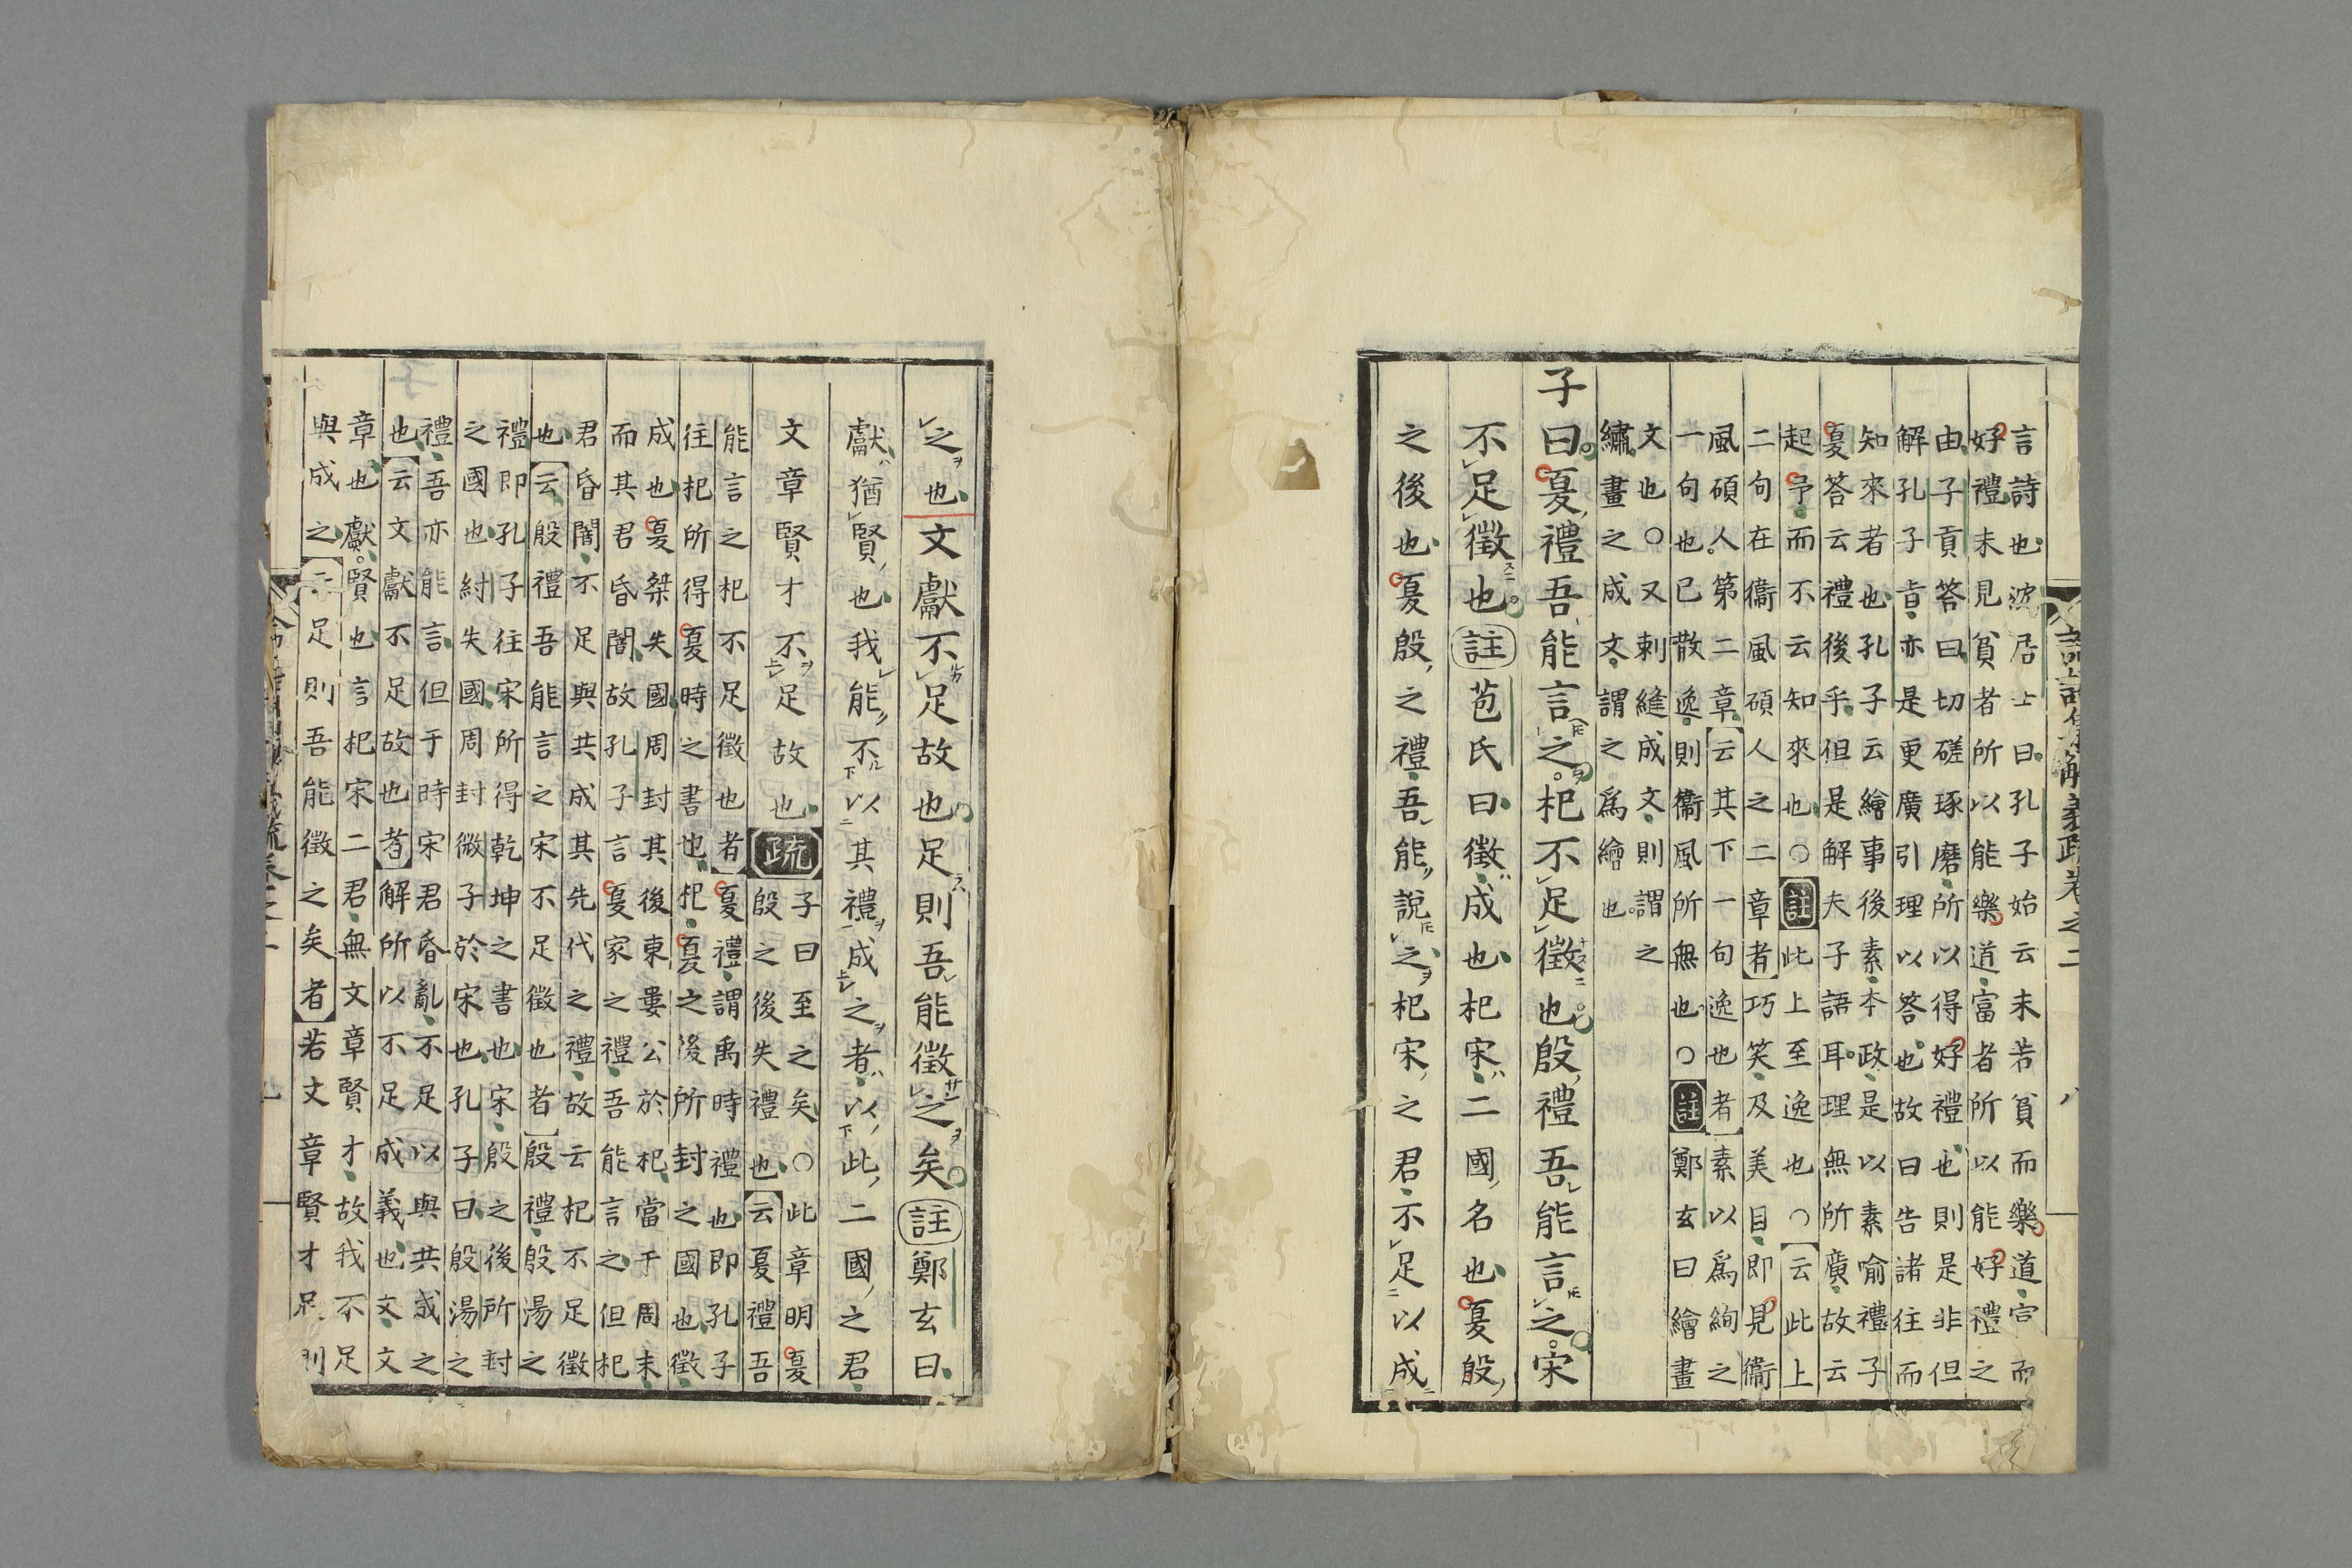 言詩也沈居士曰孔子始云未若貧而樂道富而
好禮未見貧者所以能樂道富者所以能好禮之
由子貢答曰切磋琢磨所以得好禮也則是非但
解孔子旨亦是更廣引理以答也故曰告諸往而
知來者也孔子云繪事後素本政是以素喻禮子
夏答云禮後乎但是解夫子語耳理無所廣故云
起予而不云知來也○註此上至逸也○云此上
二句在衞風碩人之二章者巧笑及美目即見衞
風碩人第二章云其下一句逸也者素以爲絢之
一句也已散逸則衞風所無也○註鄭玄曰繪畫
文也○又刺縫成文則謂之
繡畫之成文謂之爲繪也
子曰夏禮吾能言之杞不足徵也殷禮吾能言之宋
不足徵也註苞氏曰徵成也杞宋二國名也夏殷
之後也夏殷之禮吾能說之杞宋之君不足以成
之也文獻不足故也足則吾能徵之矣註鄭玄曰
獻猶賢也我能不以其禮成之者以此二國之君
文章賢才不足故也疏子曰至之矣○此章明夏
殷之後失禮也云夏禮吾
能言之杞不足徵也者夏禮謂禹時禮也即孔子
往杞所得夏時之書也杞夏之後所封之國也徵
成也夏桀失國周封其後東婁公於杞當于周末
而其君昏闇故孔子言夏家之禮吾能言之但杞
君昏闇不足與共成其先代之禮故云杞不足徵
也云殷禮吾能言之宋不足徵也者殷禮殷湯之
禮即孔子往宋所得乾坤之書也宋殷之後所封
之國也紂失國周封微子於宋也孔子曰殷湯之
禮吾亦能言但于時宋君昏亂不足以與共成之
也云文獻不足故也者解所以不足成義也文文
章也獻賢也言杞宋二君無文章賢才故我不足
與成之云足則吾能徵之矣者若文章賢才足則